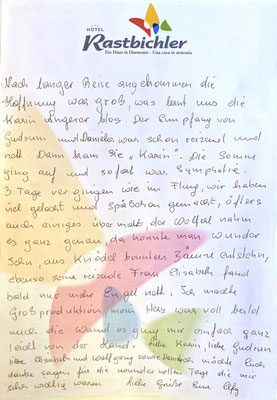 HOTEL
Rastbichler
Ein Haus in Harmonie - Una casa in armonia
Nach langer Reise angekommen die
Hoffnung war groß, was lernt uns die
Karin Angerer blos. Der Empfang von
Gudrun und Daniela war schon reizend und
nett. Dann kam sie „Karin". Die Sonne
ging auf und sofort war Symphatie.
3 Tage vergingen wie im Flug, wir haben
viel gelacht und Späßchen gemacht, öfters
auch einiges übermalt, der Wolfgang nahm
es ganz genau, da konnte man Wunder
sehn, aus Knödel konnten Bäume entstehn,
ebenso seine reizende Frau Elisabeth fand
bald nur mehr Engel nett. Ich machte
Großproduktion, mein Haus war voll bald
auch die Wand es ging mir einfach ganz
leicht von der Hand. Liebe Karin, liebe Gudrun
liebe Elisabeth und Wolfgang sowie Daniela möchte Euch
danke sagen für die wundervollen Tage die mir
sehr wichtig waren. Liebe Grüße Eure